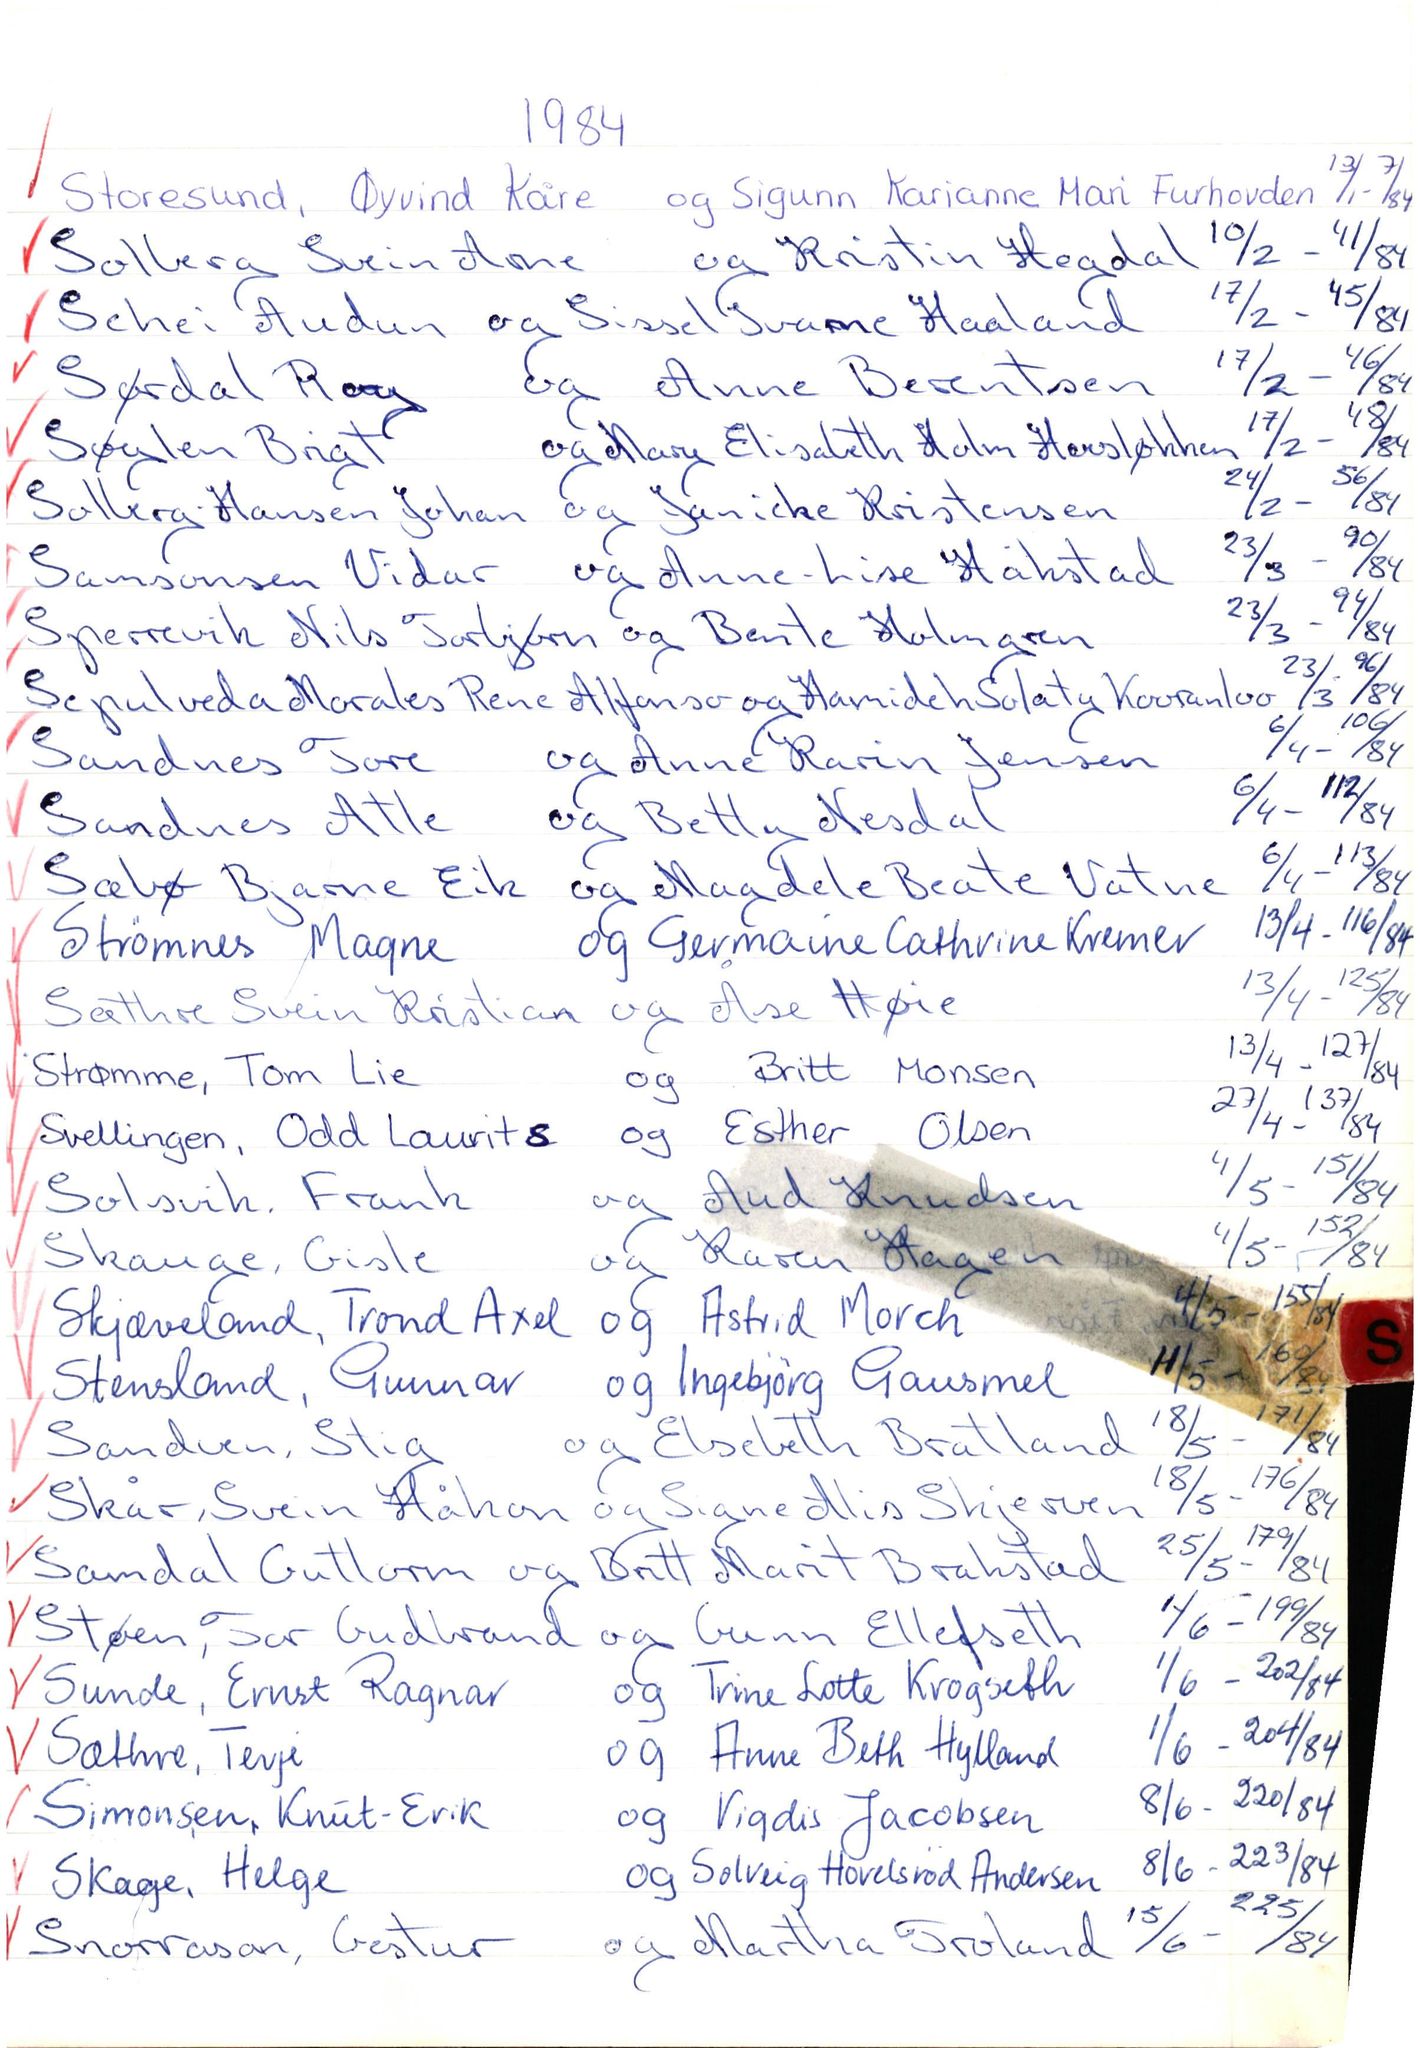 1984
Storesund, Øyvind Kåre og Sigunn Karianne Mari Furhovden 13/1 - 7/84
Solberg Svein Arne og Kristin Hegdal 10/2 - 41/84
Schei Audun og Sissel Ivarne Haaland 17/2 - 45/84
Sørdal Roy og Anne Berentsen 17/2 - 46/84
Søglen Brigt og Mary Elisabeth Holm Horsløkken 17/2 - 48/84
Solberg-Hansen Johan og Janicke Kristensen 24/2 - 56/84
Samsonsen Vidar og Anne-Lise Håkstad 23/3 - 90/84
Sperrevik Nils Torbjørn og Bente Holmgren 23/3 - 94/84
Sepulveda Morales Rene Alfonso og Hamideh Solaty Kooranloo 23/3 - 96/84
Sandnes Tore og Anne Karin Jensen 6/4 - 106/84
Sandnes Atle og Betty Nesdal 6/4 - 112/84
Sæbø Bjarne Eik og Magdele Beate Vatne 6/4 - 113/84
Strömnes Magne og Germaine Cathrine Kremer 13/4 - 116/84
Sæthre Svein Kristian og Åse Høie 13/4 - 125/84
Strømme, Tom Lie og Britt Monsen 13/4 - 127/84
Svellingen, Odd Laurits og Esther Olsen 27/4 - 137/84
Solsvik, Frank og Aud Knudsen 4/5 - 151/84
Skauge, Gisle og Karen Hagen 4/5 - 152/84
Skjæveland, Trond Axel og Astrid Morch 4/5 - 155/84
S
Stensland, Gunnar og Ingebjörg Gausmel 11/5 - 160/84
Sandven, Stig og Elsebeth Bratland 18/5 - 171/84
Skår, Svein Håkon og Signe Alis Skjerven 18/5 - 176/84
Samdal Guttorm og Britt Marit Brakstad 25/5 - 179/84
Støen, Tor Gudbrand og Gunn Ellefseth 1/6 - 199/84
Sunde, Ernst Ragnar og Trine Lotte Krogseth 1/6 - 202/84
Sæthre, Terje og Anne Beth Hylland 1/6 - 204/84
Simonsen, Knut-Erik og Vigdis Jacobsen 8/6 - 220/84
Skage, Helge og Solveig Hovelsröd Andersen 8/6 - 223/84
Snorrason, Gestur og Martha Troland 15/6 - 225/84